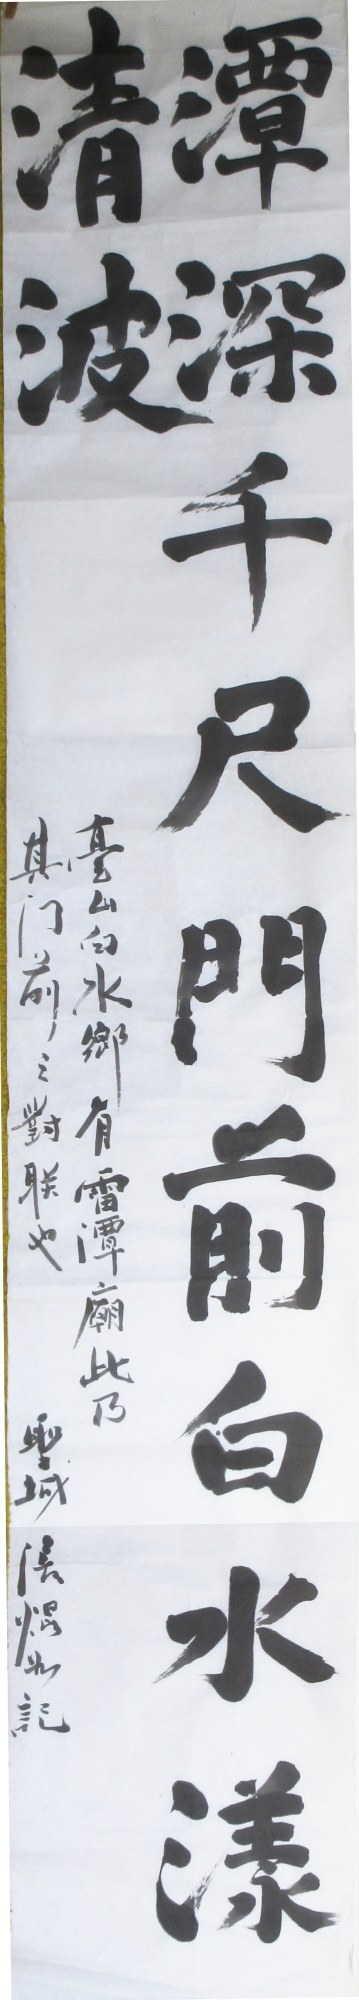 潭深千尺門前白水漾
清波
臺山白水鄉有雷潭廟此乃
其门前之對联也
聖域
記